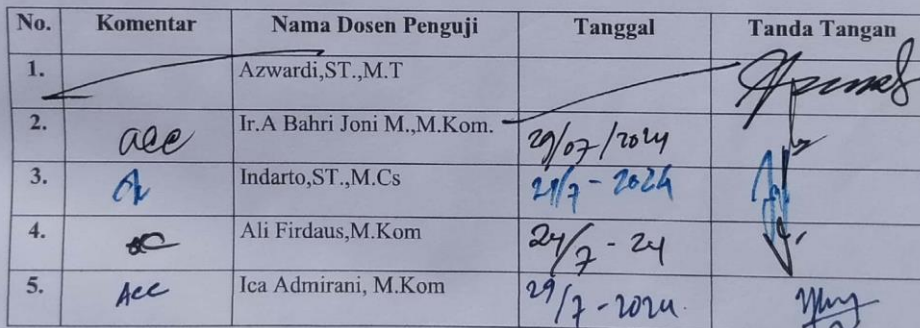 No. Komentar Nama Dosen Penguji Tanggal Tanda Tangan
1. Azwardi,ST.,M.T
2. acc Ir.A Bahri Joni M.,M.Kom. 29/07/2024
3. Indarto,ST.,M.Cs 29/7 - 2024
4. Ali Firdaus,M.Kom 24/7 - 24
5. Acc Ica Admirani, M.Kom 29/7 - 2024